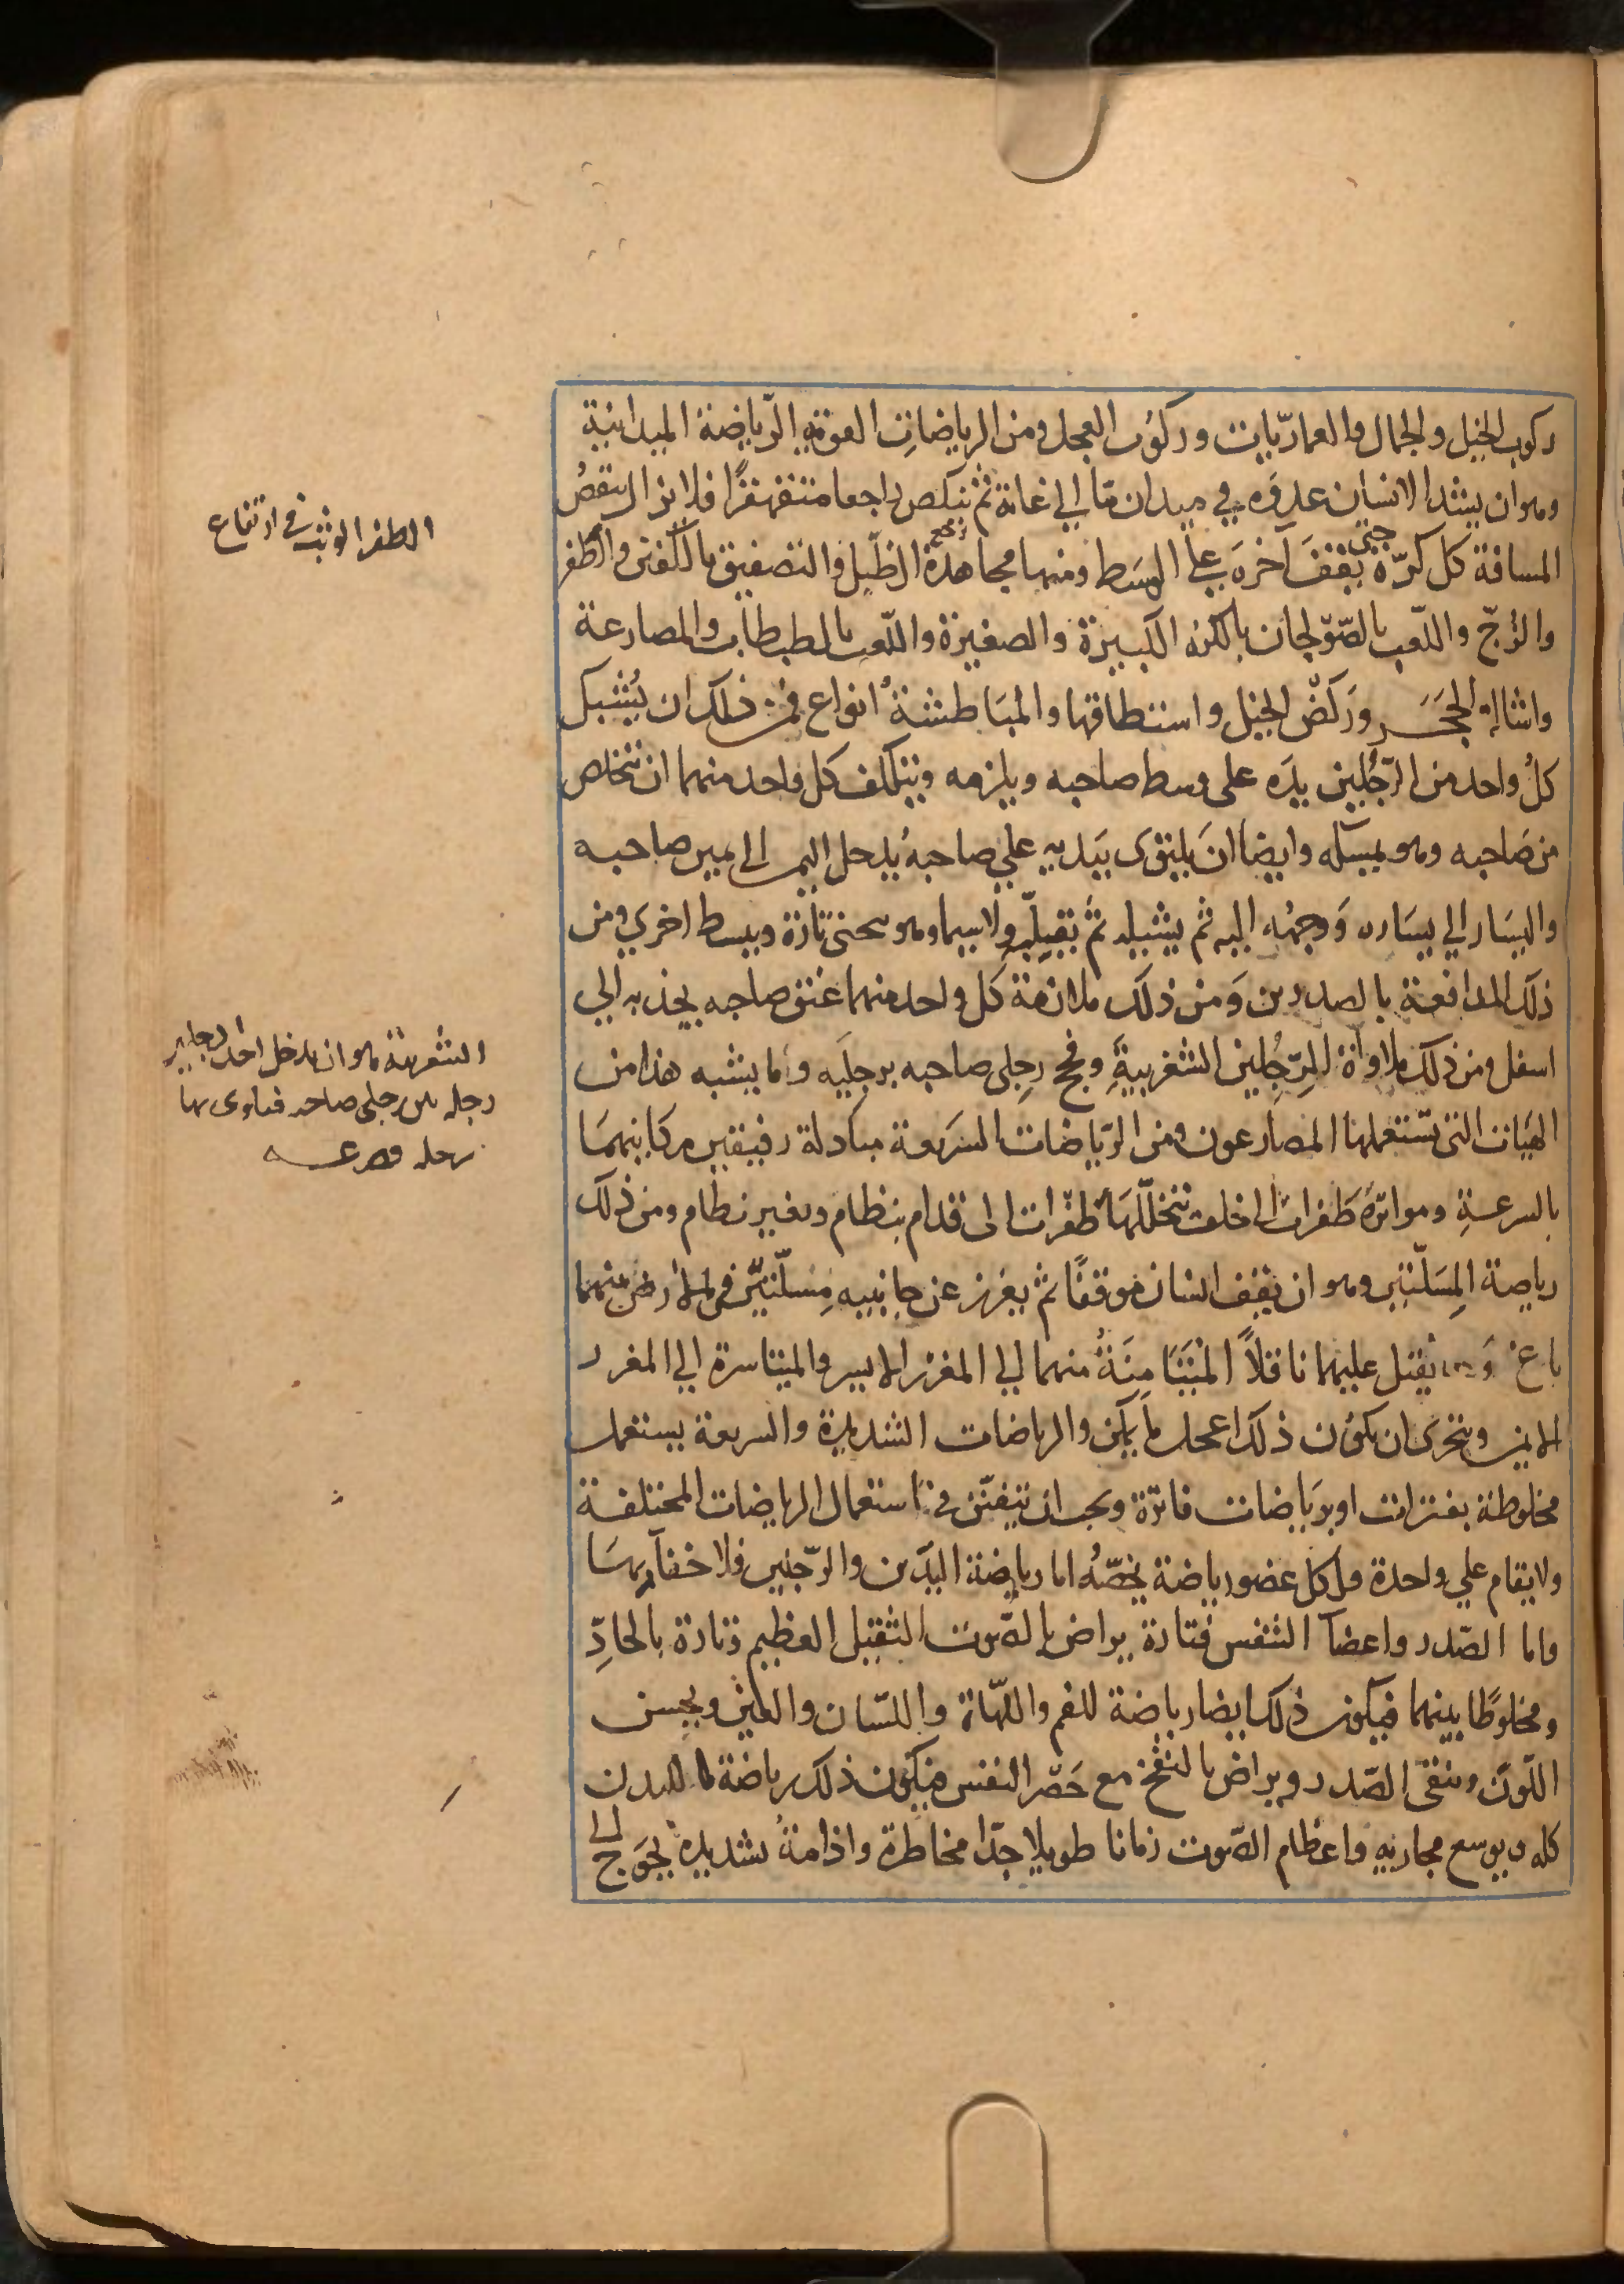 ركوب الخيل والجمال والعماريّات وركوب العجل ومن الرياضات القوية الرّياضة الميدانية
وهو ان يشد الانسان عدوَه في ميدان ما الى غاية ثم ينكص راجعا متقهقرًا فلا يزال ينقصُ
المسافة كل كرّة حتى يقفَ آخرَه على الوسَط ومنها مجاهدة الظّل والتصفيق بالكفّين والطفر
والزّجّ واللّعب بالصّولجان بالكرة الكبيرة والصغيرة واللّعب بالطبطاب والمصارعة
واشالة الحجَر ورَكضُ الخيل واستطاقها والمبَاطشةُ انواع فمن ذلك ان يُشبك
كلُ واحد من الرّجُلين يدَه على وسط صاحبه ويلزمه ويتكلف كل واحد منهما ان يتخلص
من صَاحبه وهو يمسكه وايضا انَ يلتوى بيَديه على صاحبهُ يدخل اليمين الى يمين صاحبه
واليسَار الى يسَاره وَوجهُه اليه ثم يشيله ثمَ يقلبه ولاسيما وهو ينحنى تارة ويبسط اخري ومن
ذلك المدافعة بالصدرين وَمن ذلك ملازمة كل واحد منهما عنق صاحبه يجذبه الى
اسفل ومن ذلك ملاواة الرّجِلين الشغربيةِ وفحج رجلى صاحبه برجليَه وما يشبه هذا من
الهيَات التى تستعملها المصارعون ومن الرّياضات السَريعة مبَادلة رفيقين مكانيهمَا
بالسرعةِ ومواترَة طَفرات الى خلف تتخللّهَا طفْرات الى قدام بنظام وبغير نظام ومن ذلك
رياضة المِسَلّتين وهو ان يقف انسان موقفًا ثم يغرز عن جانبيه مِسلّتيّن فى الارض بينهما
باع وَ يقبل عليهما ناقلاً المتَيَامِنَةُ منهما الى المغرز الايسر والمتياسرة الى المغرز
الايمن ويتحرى ان يكون ذلك اعجل ما يمكن والرياضات الشديدة والسريعة يستعمل
مخلوطة بفترات او برَياضات فاترة ويجب ان يتفنّن فى استعمال الرياضات المختلفة
ولا يقام على واحدة ولكل عضو رياضة يخصّهُ اما رياضة اليدَين والرّجلين فلا خفآ بهمَا
واما الصّدر واعضآ التنفس فتارة يراض بالصّوت الثقيل العظيم وتارة بالحادِّ
ومخلوطًا بينهما فيكون ذلك ايضا رياضة للفم واللهاة واللسّان والعين ويحسن
اللّون وينقى الصّدر ويراض بالنفْخ مع حَصْر النفس فيكون ذلك رياضة ما للبدن
كله ويوسع مجاريه واعظام الصّوت زمانا طويلا جدّا مخاطرة وادامةُ شديده يحوَج الى
الطفر الوثب فى ارتفاع
الشغربية هو ان يدخل احد الرجلين
رجله بين رجلى صاحبه فيلوى بها
رجله فيصرعه